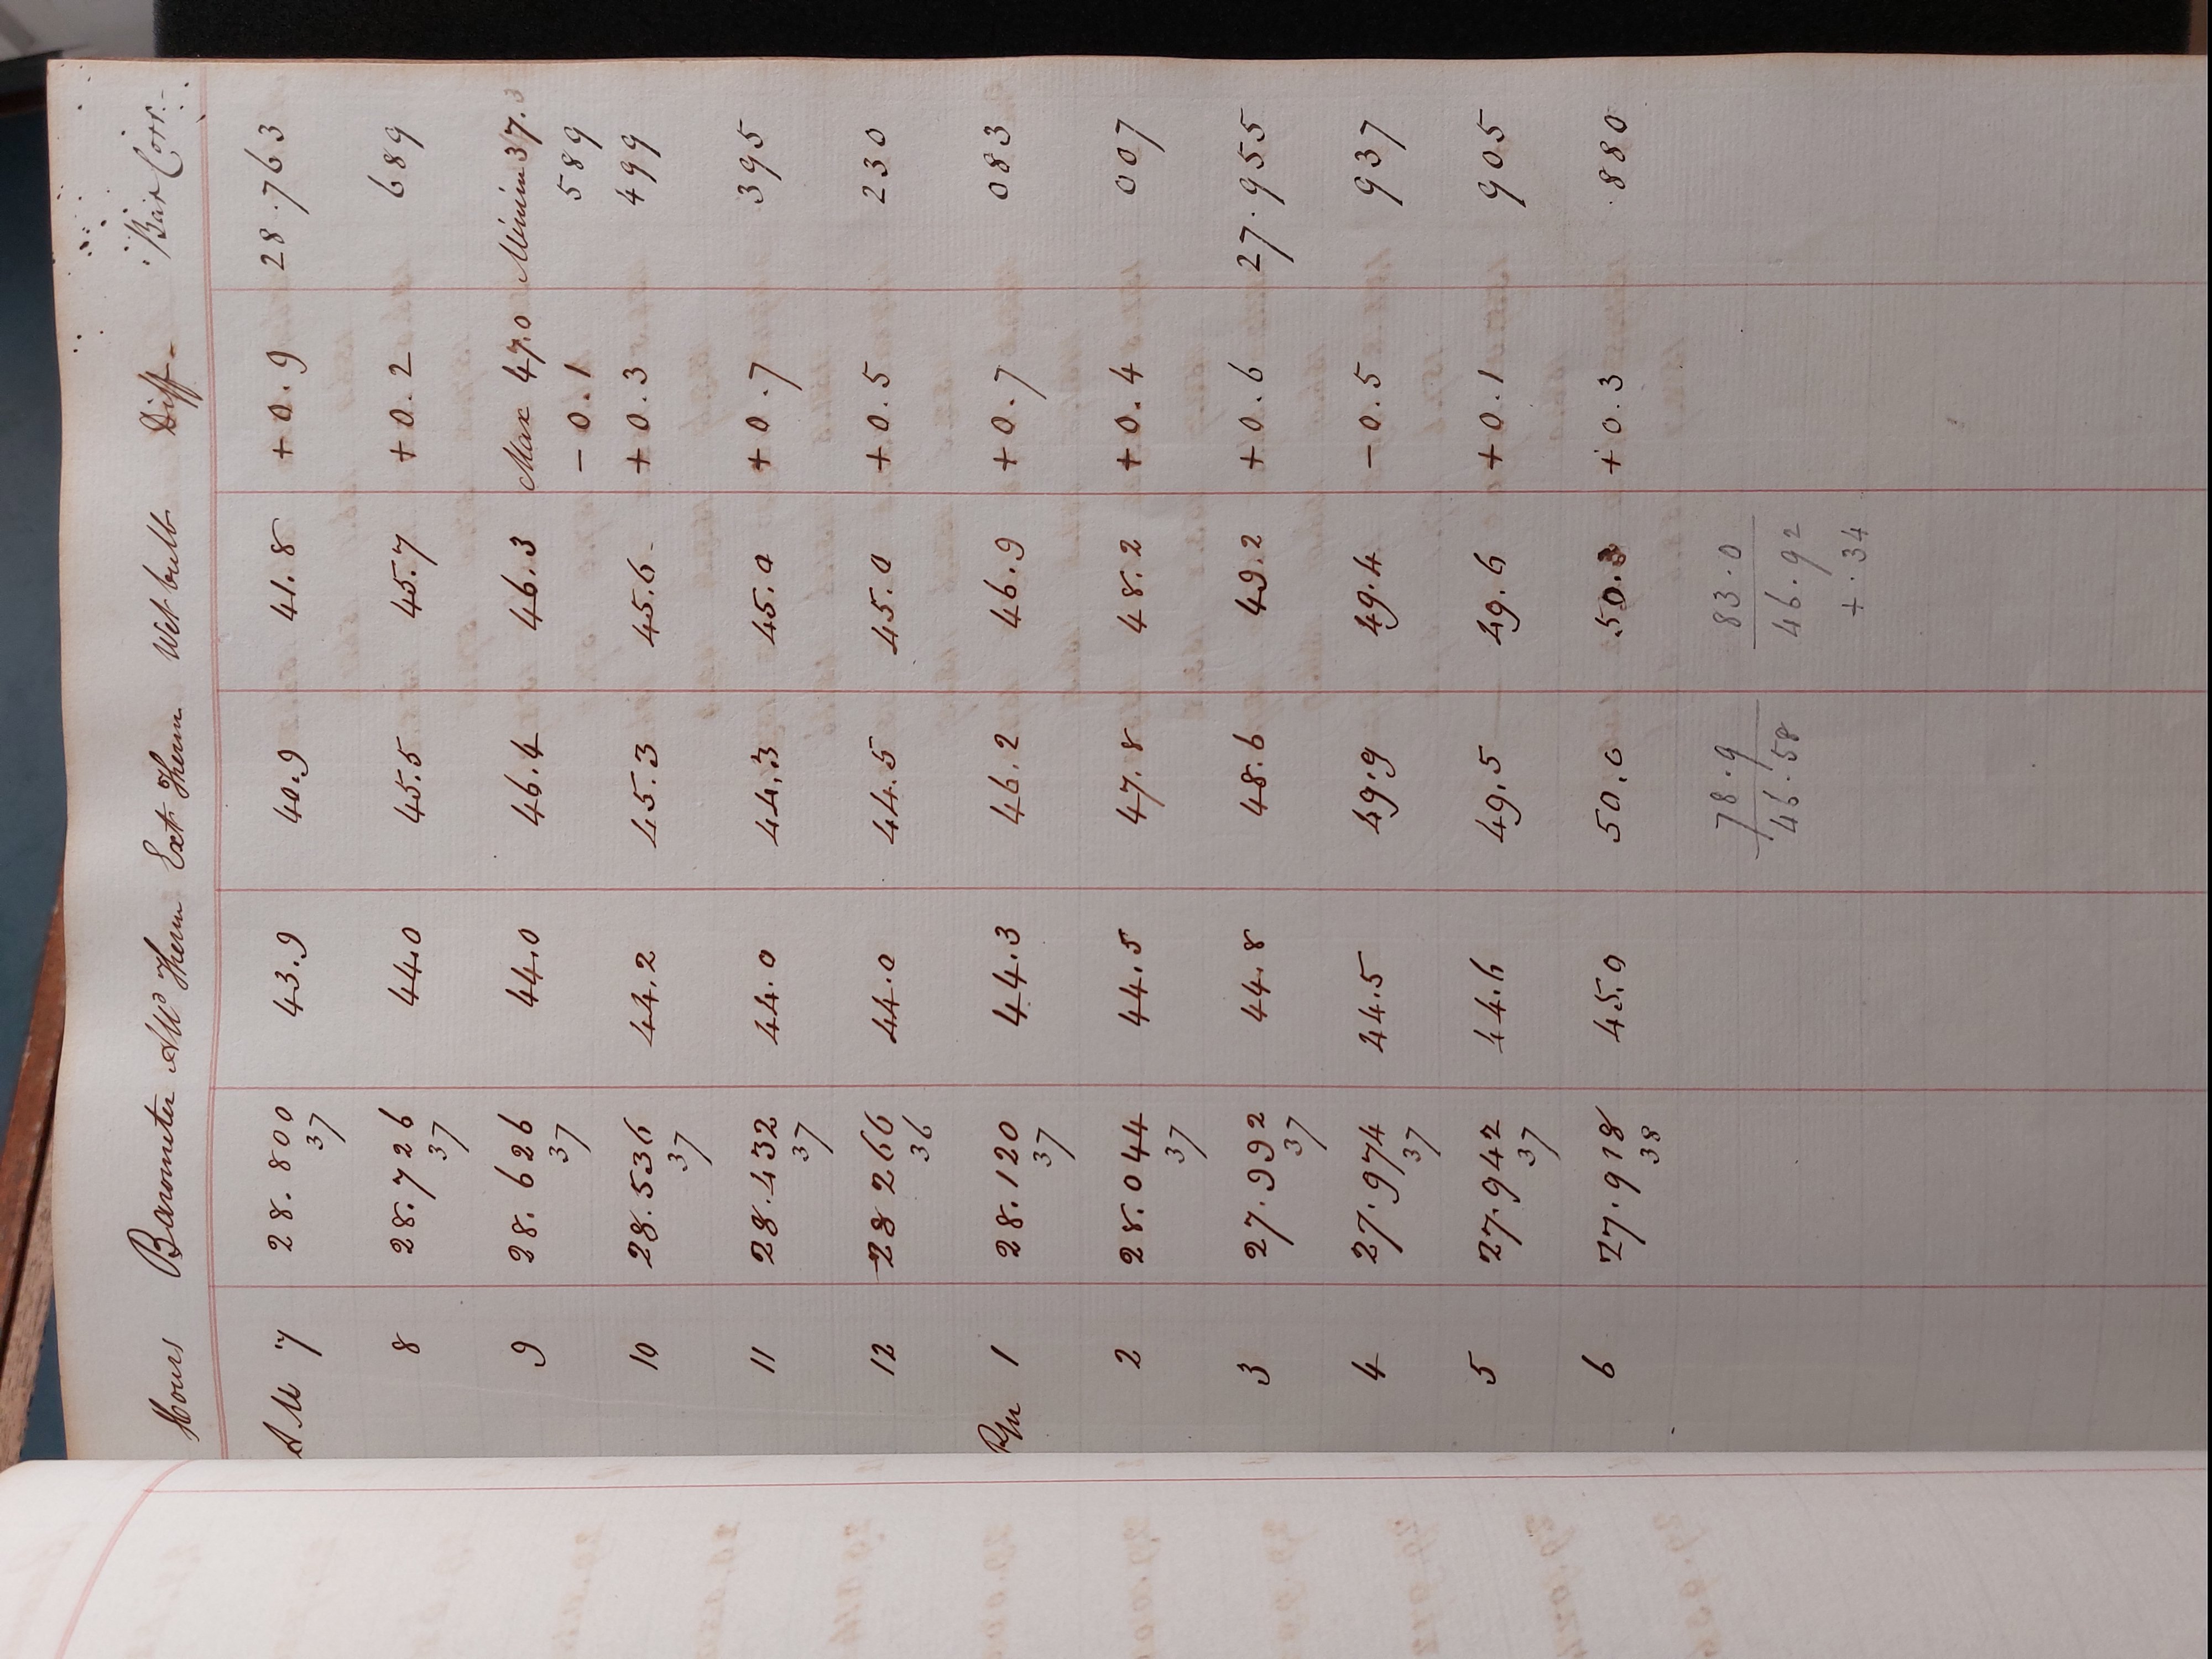 Hours Barometer Attd Therm Ext Therm Wet bulb Diff- Bar Corr.-
AM 7 28.800 43.9 40.9 41.8 +0.9 28.763
37
8 28.726 44.0 45.5 45.7 +0.2 689
37
9 28.626 44.0 46.4 46.3 Max 47.0 Minim 37.3
37 -0.1 589
10 28.536 44.2 45.3 45.6 +0.3 499
37
11 28.432 44.0 44.3 45.0 +0.7 395
37
12 28 266 44.0 44.5 45.0 +0.5 230
36
Pm 1 28.120 44.3 46.2 46.9 +0.7 083
37
2 28.044 44.5 47.8 48.2 +0.4 007
37
3 27.992 44.8 48.6 49.2 +0.6 27.955
37
4 27.974 44.5 49.9 49.4 -0.5 937
37
5 27.942 44.6 49.5 49.6 +0.1 905
37
6 27.918 45.0 50.0 50.3 +0.3 880
38
78.9 83.0
46.58 46.92
+.34